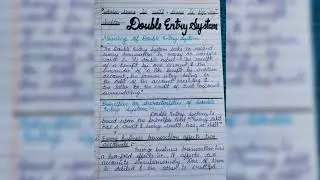 Double Entry System
Meaning of Double Entry System
"The Double Entry System seeks to record
every transaction in money or money's
worth in its double aspect - the receipt
of a benefit by one account & the
surrender of a like benefit by another
account, the former entry being to
the debit of the account receiving &
the latter to the credit of that account
surrendering."
Principles or characteristics of Double
Entry System
Double Entry System is
based upon the principle that "Every debit
has a credit & every credit has a debit"
1. Every business transaction affects two
accounts:
Every business transaction has
a two-fold effect i.e. it affects two
accounts simultaneously. One of them
is debited & the other is credited